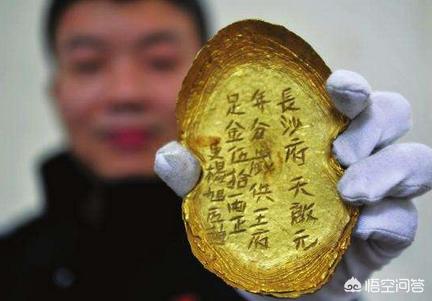 長沙府天啟元
年分歲供王府
足金伍拾兩正
吏楊旭匠
悟空问答